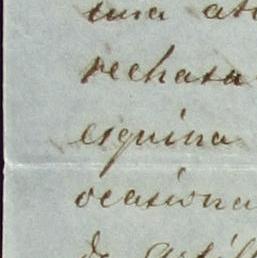 una
rechasa
esquina
ocasiona
de